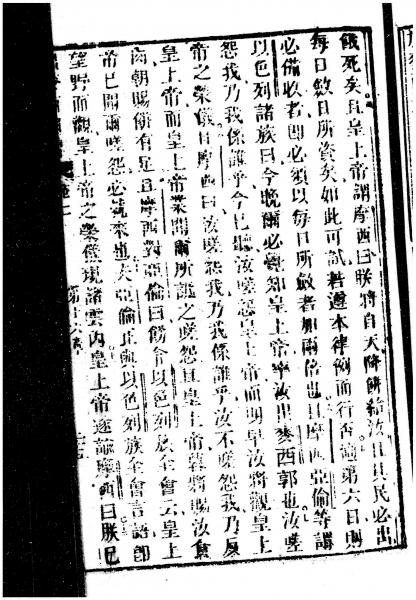 餓死矣且皇上帝謂摩西曰朕將自天降餅給汝且其民必出
每日斂日所資矣如此可試若遵本律例而行否適第六日則
必備收者即必須以每日所斂者加兩倍也且摩西亞倫等謂
以色列諸族曰今晚爾必知皇上帝率汝出麥西郭也汝嗟
怨我乃我係誰乎今已聽汝嗟怨皇上帝而明早汝將觀皇上
帝之榮儀且摩西曰汝嗟怨我乃我係誰乎汝不嗟怨我乃反
皇上帝而皇上帝業聞爾所之嗟怨且皇上帝暮將賜汝食
肉朝賜餅有足且摩西對亞倫曰飭令以色列族全會云皇上
帝已聞爾嗟怨必就來也夫亞倫正與以色列族全會言語卽
望野而觀皇上帝之榮儀現諸雲內皇上帝遂諭摩西曰朕已
第十六章